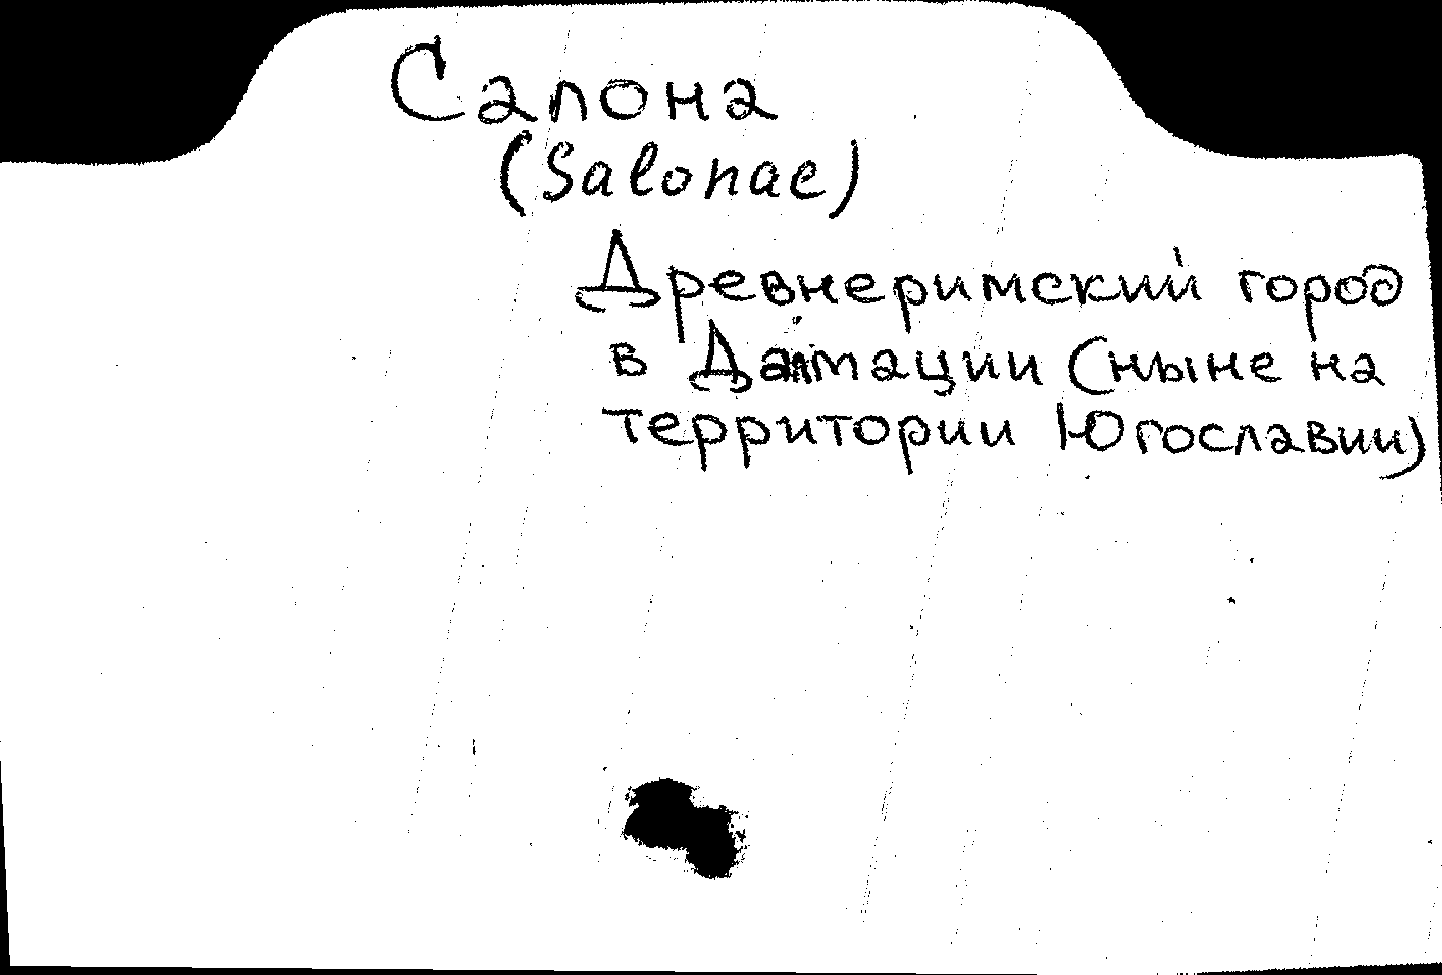 Салона
(Salonae)
Древнеримский город
в Далмации (ныне на
территории Югославии)